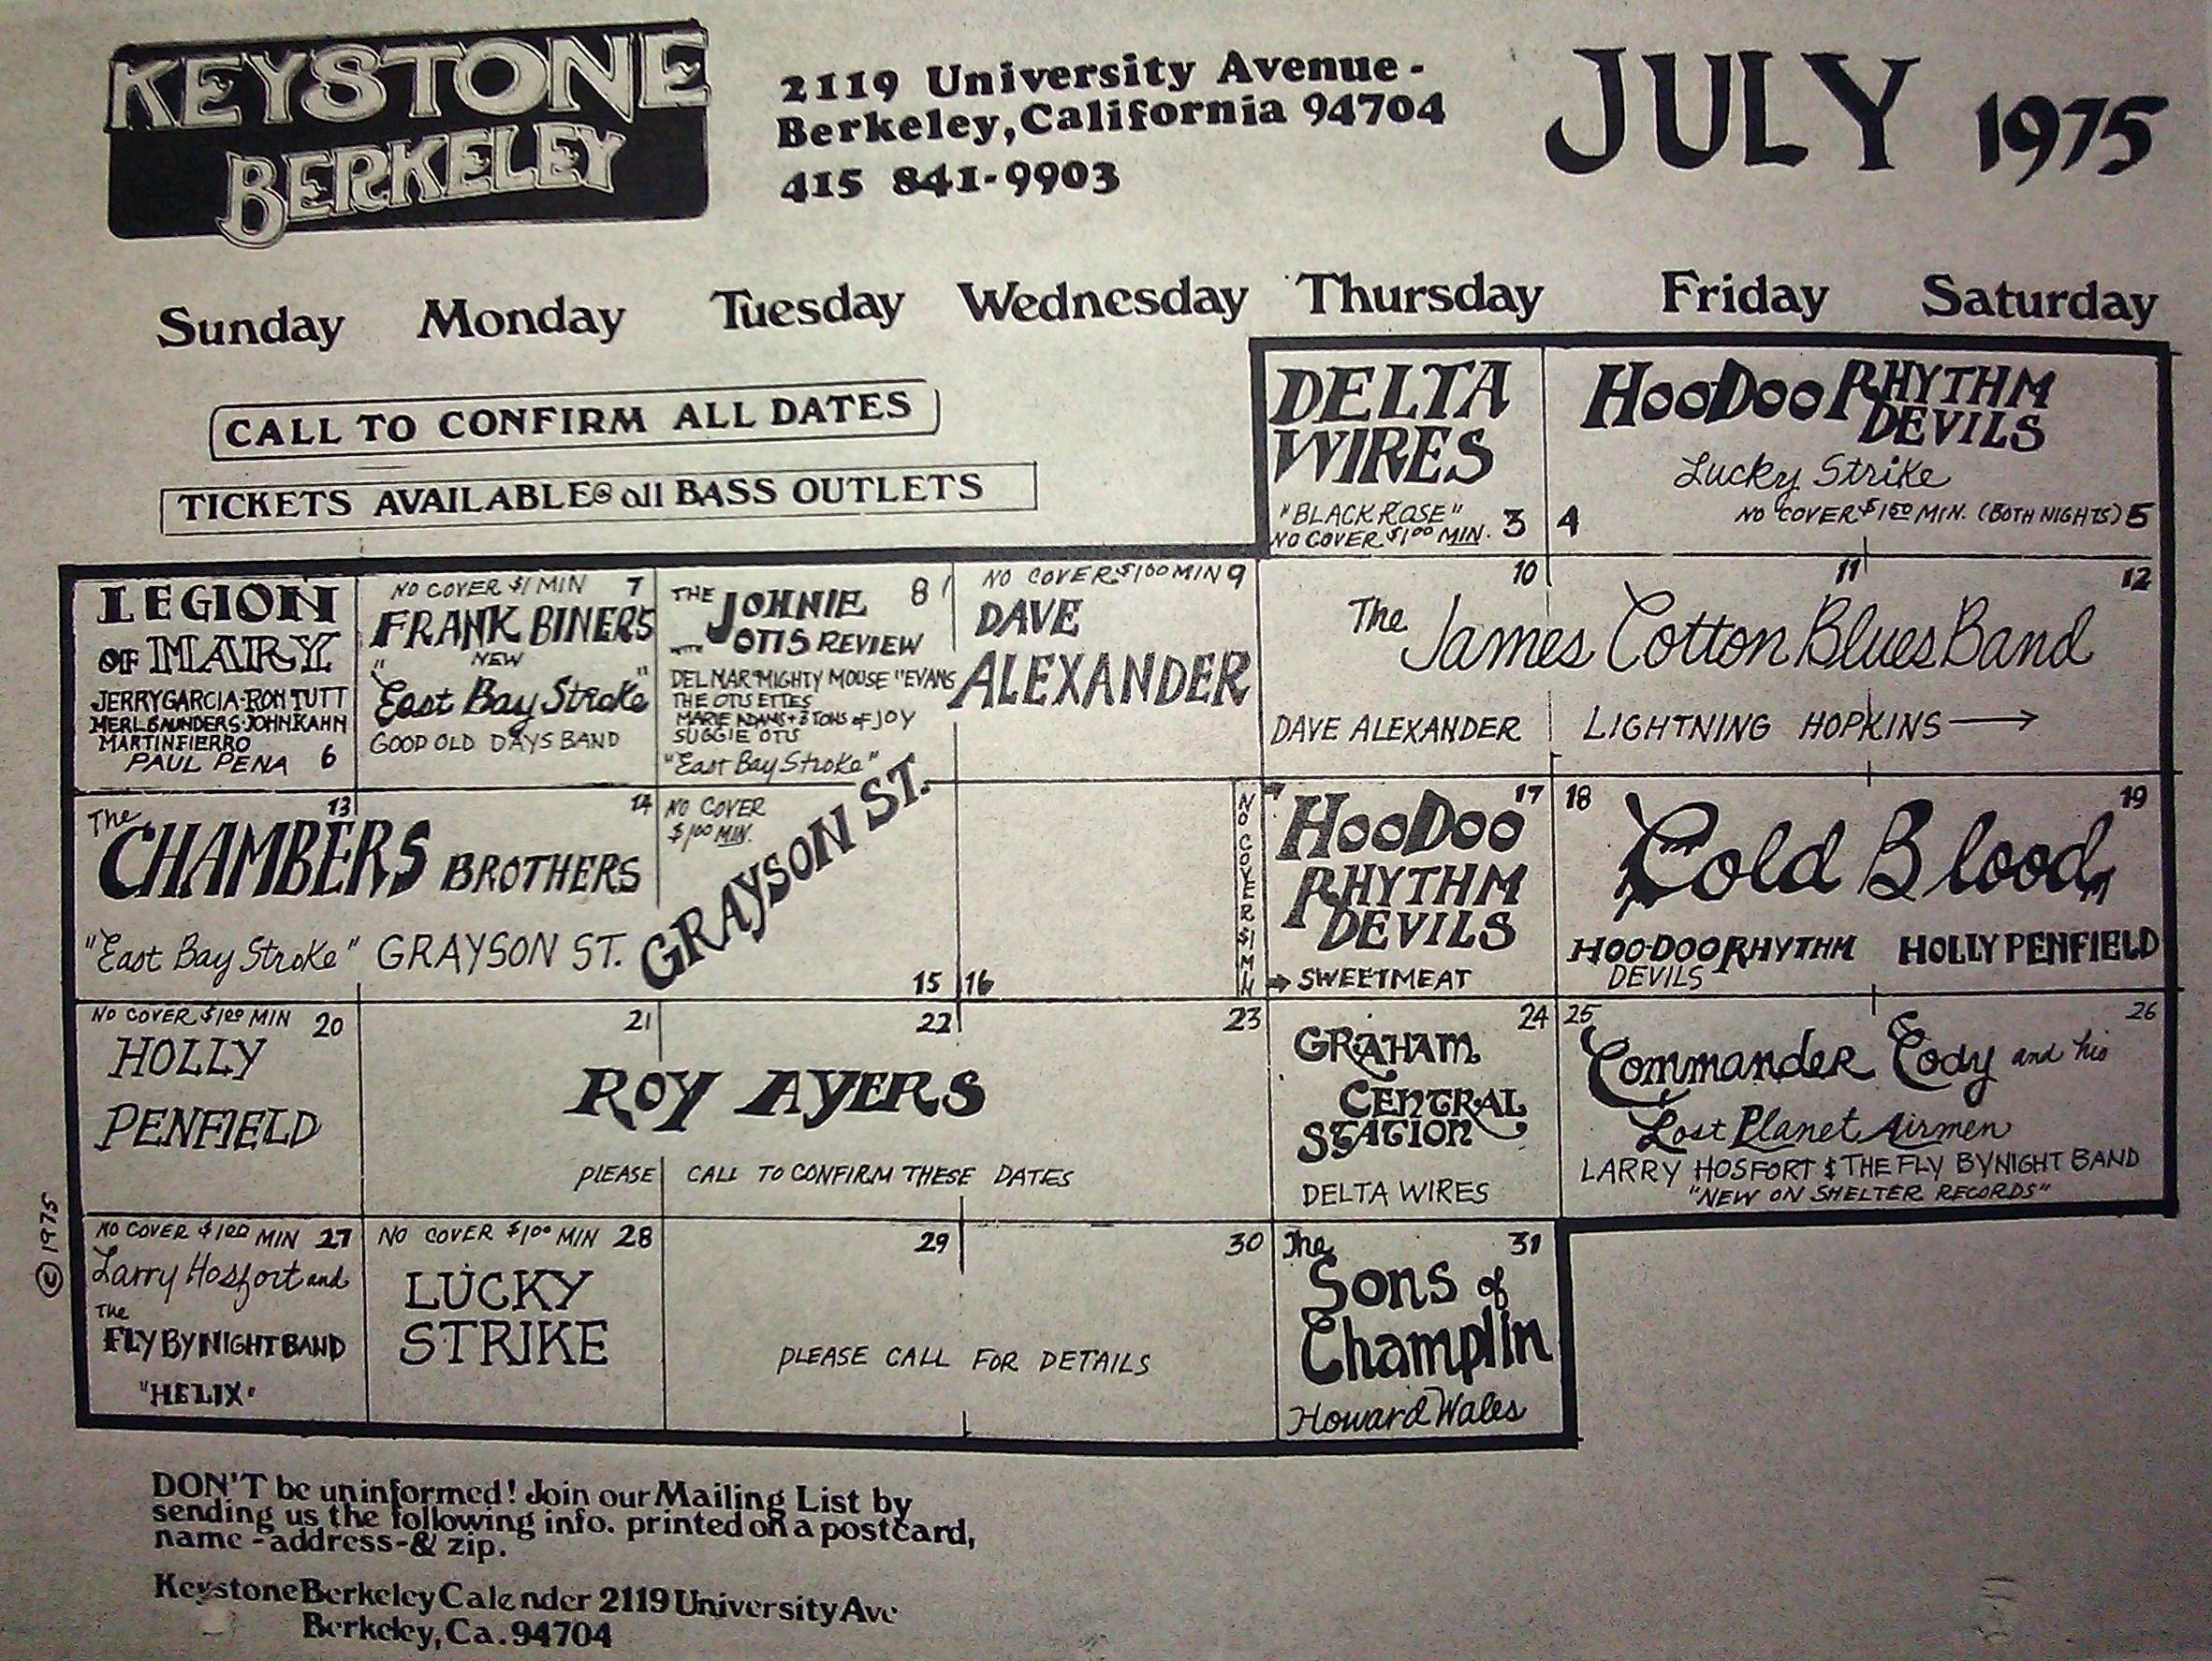 KEYSTONE
BERKELEY
2119 University Avenue-
Berkeley, California 94704
415 841-9903
JULY 1975
Sunday Monday Tuesday Wednesday Thursday Friday Saturday
CALL TO CONFIRM ALL DATES
TICKETS AVAILABLE@ all BASS OUTLETS
DELTA
WIRES
"BLACK ROSE"
NO COVER $1 00 MIN. 3
HooDoo RHYTHM
DEVILS
Lucky Strike
4 NO COVER $1 00 MIN. (BOTH NIGHTS) 5
LEGION
OF MARY
JERRY GARCIA·RON TUTT
MERL SAUNDERS·JOHN KAHN
MARTIN FIERRO
PAUL PENA 6
NO COVER $1 MIN 7
FRANK BINERS
NEW
"East Bay Stroke"
GOOD OLD DAYS BAND
THE JOHNIE 8
OTIS REVIEW
WITH
DELMAR "MIGHTY MOUSE" EVANS
THE OTIS ETTES
MARIE ADAMS + 3 TONS OF JOY
SUGGIE OTIS
"East Bay Stroke"
NO COVER $1 00 MIN 9
DAVE
ALEXANDER
10 11 12
The James Cotton Blues Band
DAVE ALEXANDER LIGHTNING HOPKINS →
13 14
The CHAMBERS BROTHERS
"East Bay Stroke" GRAYSON ST.
NO COVER
$1 00 MIN.
GRAYSON ST.
15 16
NO COVER $1 MIN
HooDoo 17
RHYTHM
DEVILS
→ SWEETMEAT
18 19
Cold Blood
HOO-DOO RHYTHM HOLLY PENFIELD
DEVILS
NO COVER $1 00 MIN 20
HOLLY
PENFIELD
21 22 23
ROY AYERS
PLEASE CALL TO CONFIRM THESE DATES
24
GRAHAM
CENTRAL
STATION
DELTA WIRES
25 26
Commander Cody and his
Lost Planet Airmen
LARRY HOSFORT & THE FLY BY NIGHT BAND
"NEW ON SHELTER RECORDS"
NO COVER $1 00 MIN 27
Larry Hosfort and
The
FLY BY NIGHT BAND
"HELIX"
NO COVER $1 00 MIN 28
LUCKY
STRIKE
29 30
PLEASE CALL FOR DETAILS
The 31
Sons of
Champlin
Howard Wales
© 1975
DON'T be uninformed! Join our Mailing List by
sending us the following info. printed on a postcard,
name -address-& zip.
Keystone Berkeley Calender 2119 University Ave
Berkeley, Ca. 94704